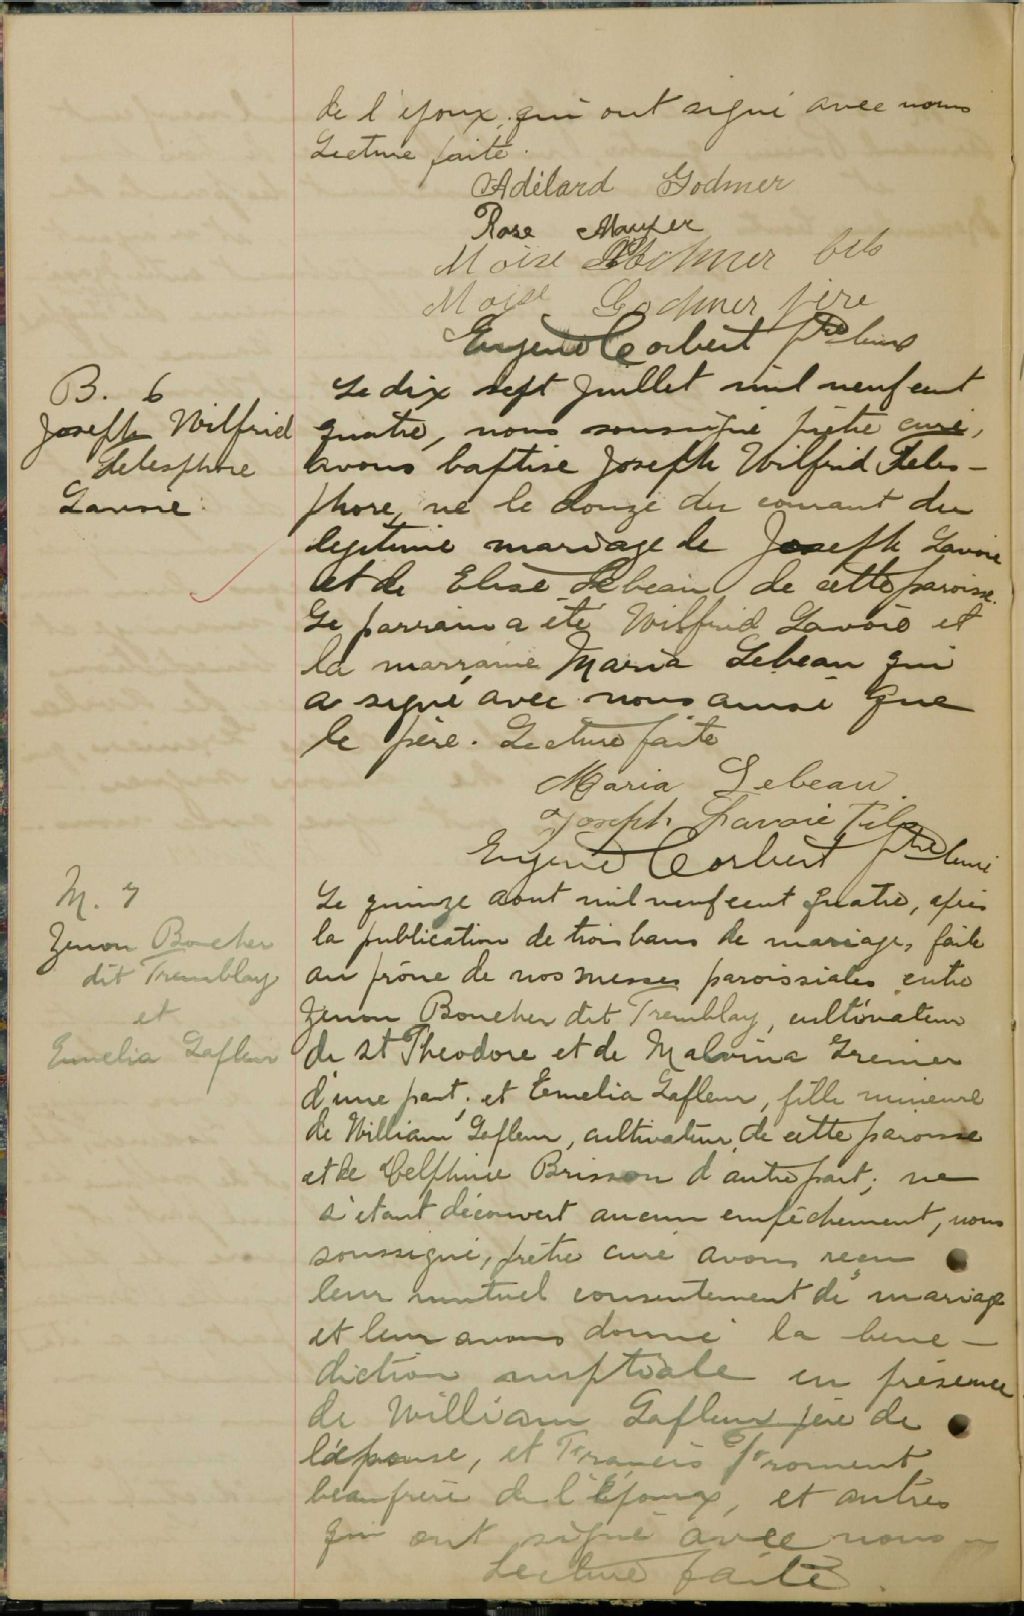 de l'époux, qui ont signé avec nous
Lecture faite.
Adélard Godmer
Rose
Moise Godmer fils
Moise Godmer père
Eugène Corbert ptre curé
B. 6
Joseph Wilfrid
Telesphore
Lavoie
Le dix sept Juillet mil neuf cent
quatre, nous soussigné prêtre curé,
avons baptise Joseph Wilfrid Teles-
phore, né le douze du courant du
legitime mariage de Joseph Lavoie
et de Elise Lebeau de cette paroisse.
Le parrain a été Wilfrid Lavoie et
la marraine Maria Lebeau qui
a signé avec nous ainsi que
le père. Lecture faite
Maria Lebeau
Joseph Lavoie fils
Eugène Corbert ptre curé
M. 7
Zenon Boucher
dit Tremblay
et
Emelia Lafleur
Le quinze aout mil neuf cent quatre, après
la publication de trois bans de mariage, faite
au prône de nos messes paroissiales entre
Zenon Boucher dit Tremblay, cultivateur
de St Theodore et de Malvina Grenier
d'une part; et Emelia Lafleur, fille mineure
de William Lafleur, cultivateur de cette paroisse
et de Delphine Brisson d'autre part; ne
s'étant découvert aucun empêchement, nous
soussigné, prêtre curé avons reçu
leur mutuel consentement de mariage
et leur avons donné la béné-
diction nuptiale en présence
de William Lafleur père de
l'épouse, et Francis Froment
beaufrère de l'époux, et autres
qui ont signé avec nous-
Lecture faite.